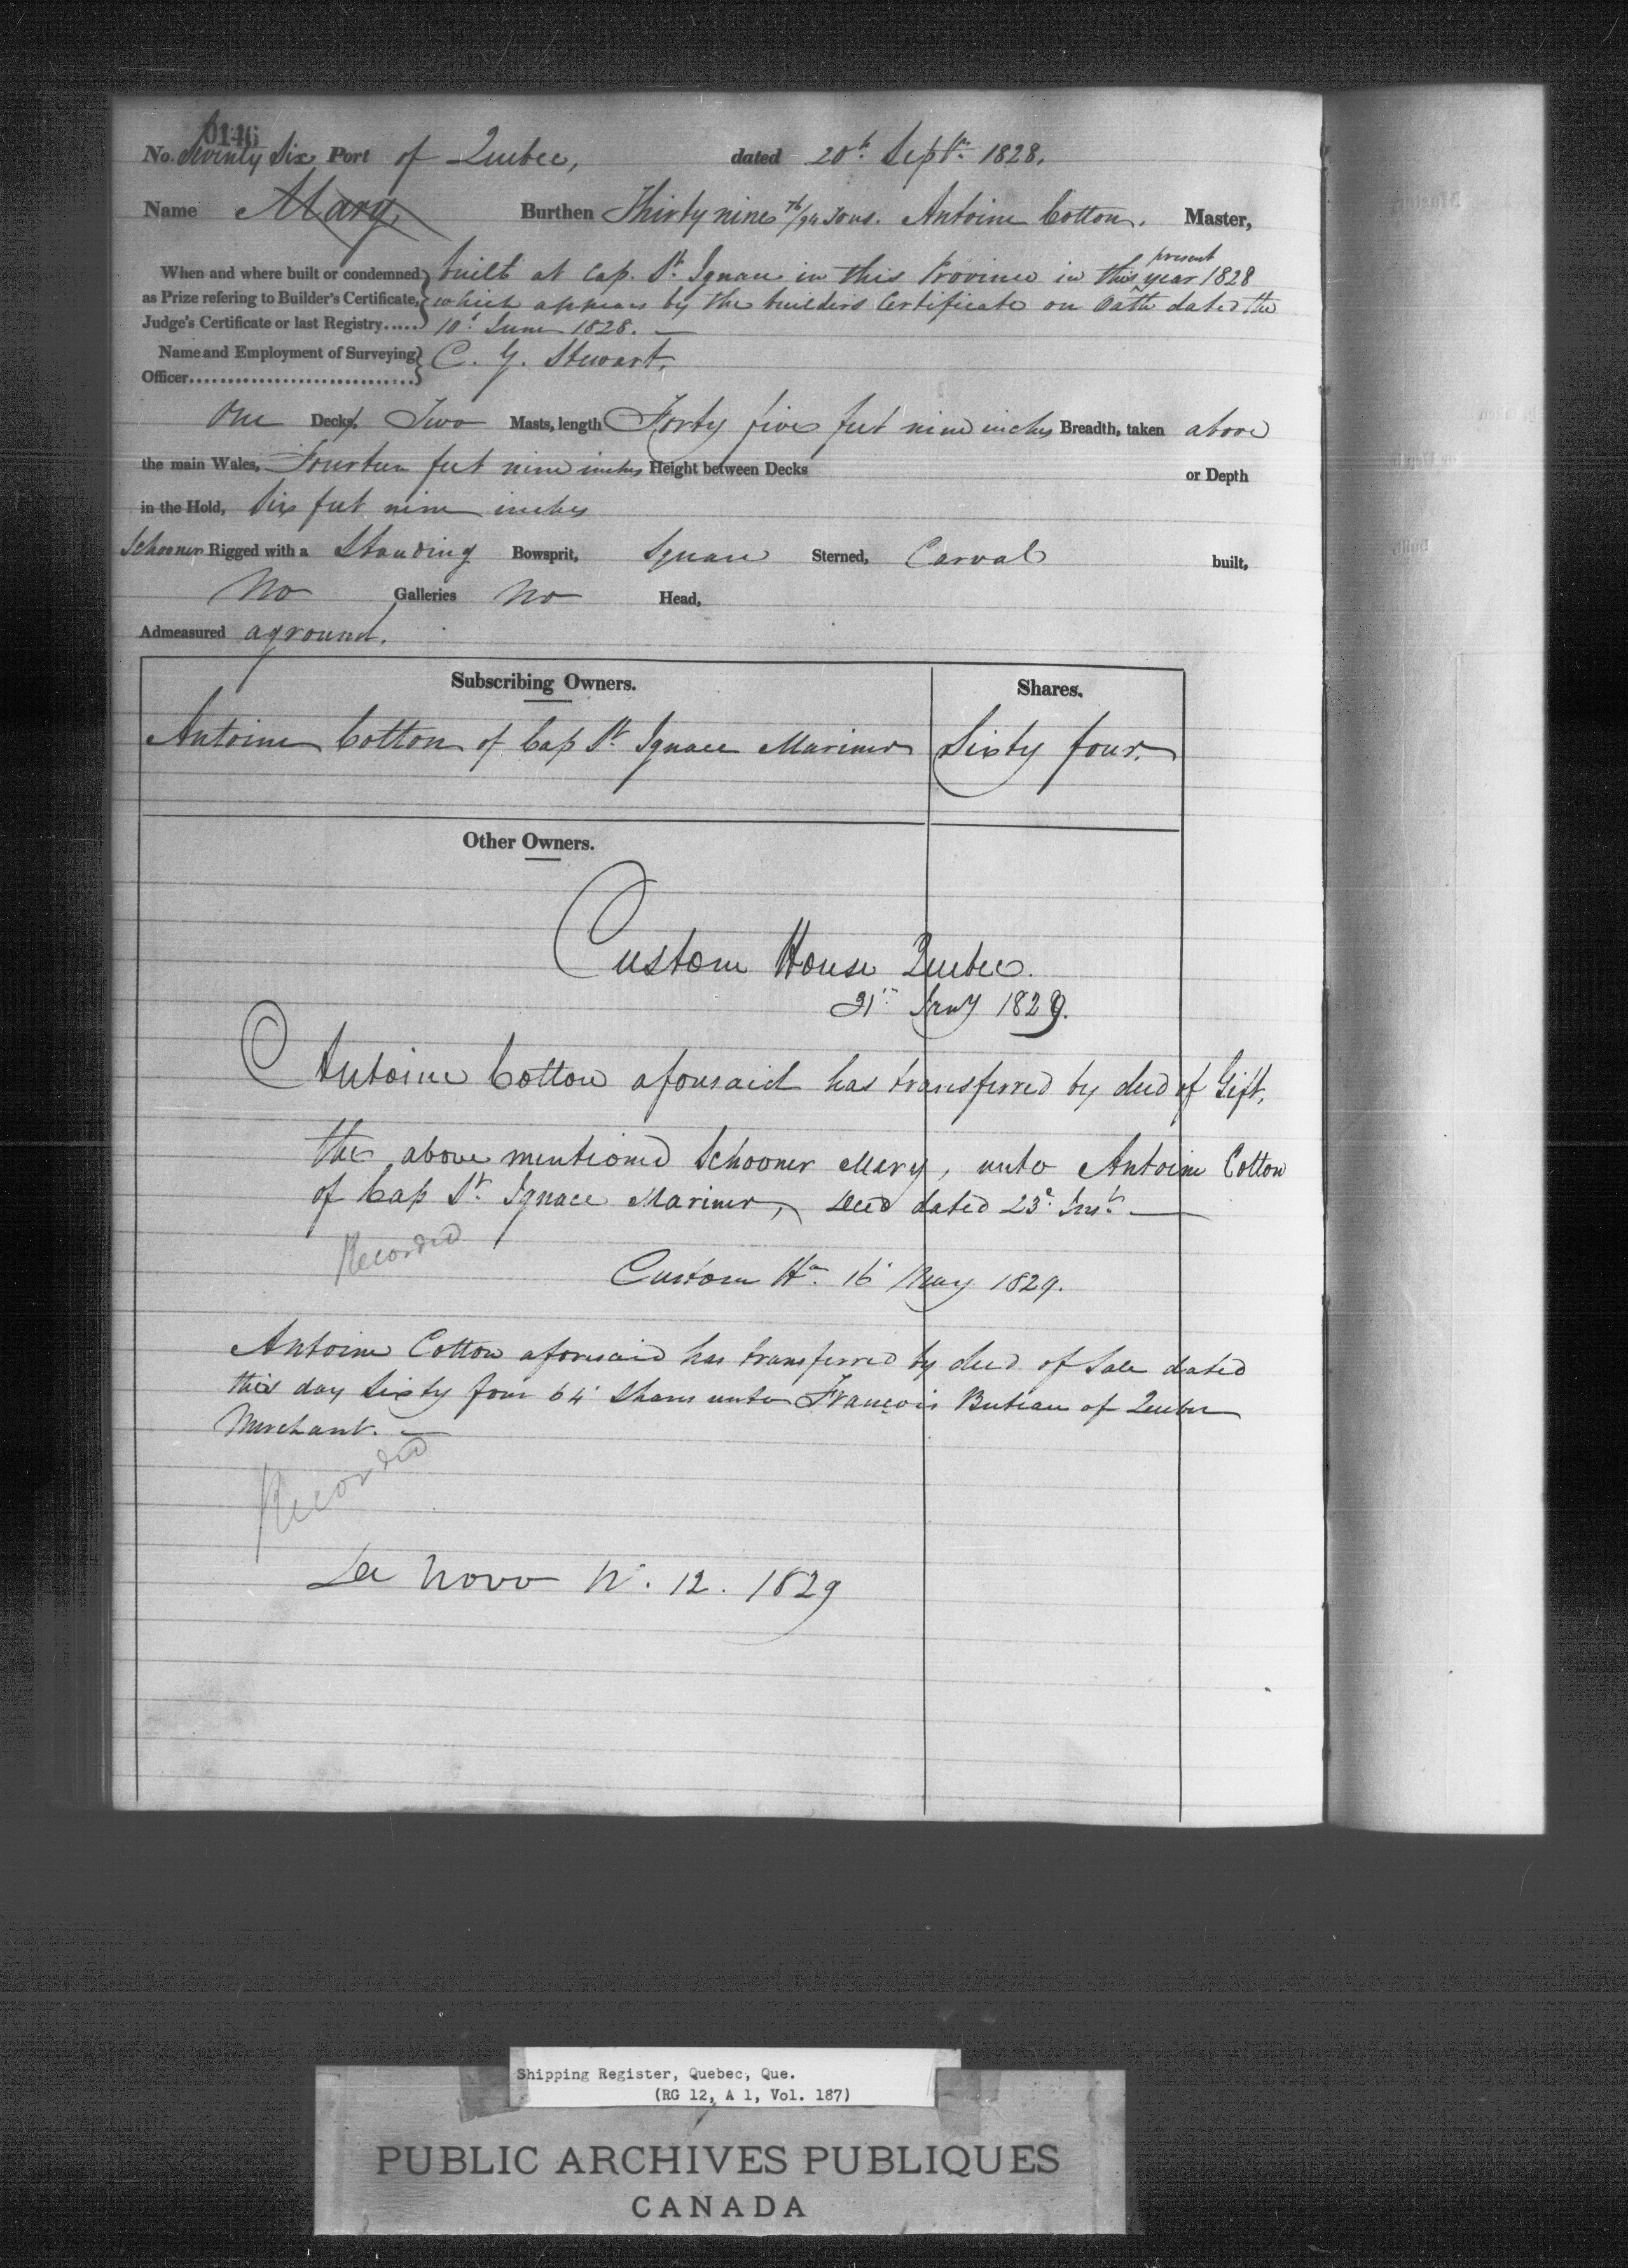 0146
No. Seventy Six Port of Quebec, dated 20th Septr. 1828.
Name Mary, Burthen Thirty nine 76/94 Tons. Antoine Cotton. Master,
When and where built or condemned as Prize refering to Builder's Certificate, Judge's Certificate or last Registry..... built at Cap. St. Ignace in this Province in this present year 1828
which appears by the builders Certificate on Oath dated the
10th June 1828. —
Name and Employment of Surveying Officer.............................. C. G. Stewart.
One Decks, Two Masts, length Forty five feet nine inches Breadth, taken above
the main Wales, Fourteen feet nine inches Height between Decks or Depth
in the Hold, Six feet nine inches
Schooner Rigged with a Standing Bowsprit, Square Sterned, Carval built,
No Galleries No Head,
Admeasured aground.
Subscribing Owners. Shares.
Antoine Cotton of Cap St. Ignace Mariner Sixty four.
Other Owners.
Custom House Quebec.
31st Jany 1829.
Antoine Cotton aforesaid has transferred by deed of Gift,
the above mentioned Schooner Mary, unto Antoine Cotton
of Cap St. Ignace Mariner, Deed dated 23d Inst. —
Recorded
Custom He. 16 May 1829.
Antoine Cotton aforesaid has transferred by deed of Sale dated
this day Sixty four 64 Shares unto François Buteau of Quebec
Merchant. —
Recorded
De Novo No. 12. 1829
Shipping Register, Quebec, Que.
(RG 12, A 1, Vol. 187)
PUBLIC ARCHIVES PUBLIQUES
CANADA